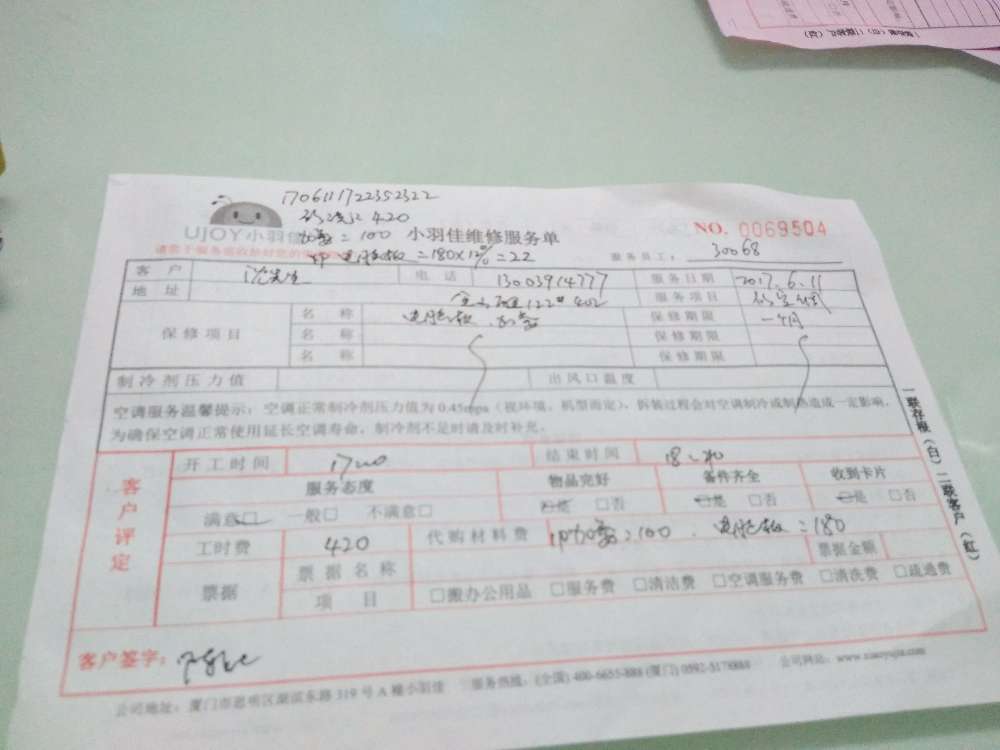 1706111722352322
420
UJOY小羽佳 加氨=100 小羽佳维修服务单 NO. 0069504
电脑板=180×12%=22 服务员工: 30068
客户 沈先生 电话 13003914777 服务日期 2017.6.11
地址 122# 402 服务项目
保修项目 名称 电脑板 加氨 保修期限 一个月
名称 保修期限
名称 保修期限
制冷剂压力值 出风口温度
空调服务温馨提示:空调正常制冷剂压力值为0.45mpa(视环境、机型而定),拆装过程会对空调制冷或制热造成一定影响,
为确保空调正常使用延长空调寿命,制冷剂不足时请及时补充。
一联存根(白)二联客户(红)
客户评定
开工时间 结束时间
服务态度 物品完好 备件齐全 收到卡片
满意□ 一般□ 不满意□ □是 □否 □是 □否 □是 □否
工时费 420 代购材料费 加氨=100 电脑板=180
票据 票据名称 票据金额
项目 □搬办公用品 □服务费 □清洁费 □空调服务费 □清洗费 □疏通费
客户签字:
公司地址:厦门市思明区湖滨东路319号A幢小羽佳 服务热线:(全国)400-6655-888 (厦门)0592-5178888 公司网站:www.xiaoyujia.com